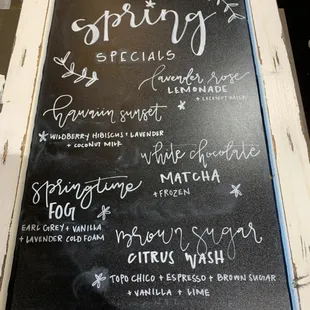 Spring
SPECIALS
lavender rose
LEMONADE
+ COCONUT MILK
hawaiin sunset
WILDBERRY HIBISCUS + LAVENDER
+ COCONUT MILK
white chocolate
MATCHA
+ FROZEN
springtime
FOG
EARL GREY + VANILLA
+ LAVENDER COLD FOAM
brown sugar
CITRUS WASH
TOPO CHICO + ESPRESSO + BROWN SUGAR
+ VANILLA + LIME